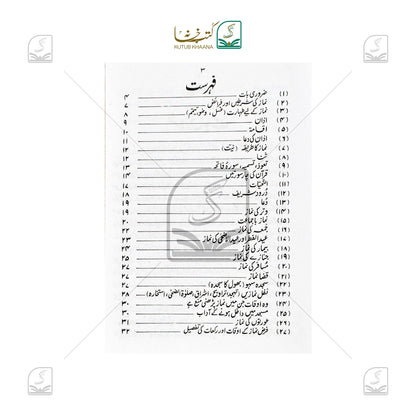 کتب خانہ
KUTUB KHAANA
۳
فہرست
(۱) ضروری بات ۴
(۲) نماز کی شرطیں اور فرائض ۷
(۳) نماز کے لیے طہارت (غسل، وضو، تیمم) ۸
(۴) اذان ۹
(۵) اقامت ۱۰
(۶) اذان کی دعا ۱۱
(۷) نماز کا طریقہ (نیت) ۱۲
(۸) ثنا ۱۲
(۹) تعوذ، تسمیہ، سورۂ فاتحہ ۱۳
(۱۰) قرآن کی چار سورتیں ۱۴
(۱۱) التحیات ۱۷
(۱۲) درود شریف ۱۸
(۱۳) دعا
(۱۴) وتر کی نماز
(۱۵) نماز باجماعت ۲۰
(۱۶) جمعہ کی نماز ۲۲
(۱۷) عید الفطر اور عید الاضحیٰ کی نماز ۲۳
(۱۸) بیمار کی نماز ۲۴
(۱۹) جنازے کی نماز ۲۵
(۲۰) مسافر کی نماز ۲۷
(۲۱) قضا نماز ۲۷
(۲۲) سجدہ سہو (بھول کا سجدہ) ۲۷
(۲۳) نفل نمازیں (تہجد، تراویح، اشراق، صلوٰۃ الضحیٰ، استخارہ) ۲۸
(۲۴) وہ اوقات جن میں نماز پڑھنی منع ہے ۳۰
(۲۵) مسجد میں داخل ہونے کے آداب ۳۰
(۲۶) عورتوں کی نماز ۳۱
(۲۷) فرض نماز کے اوقات اور رکعات کی تفصیل ۳۲